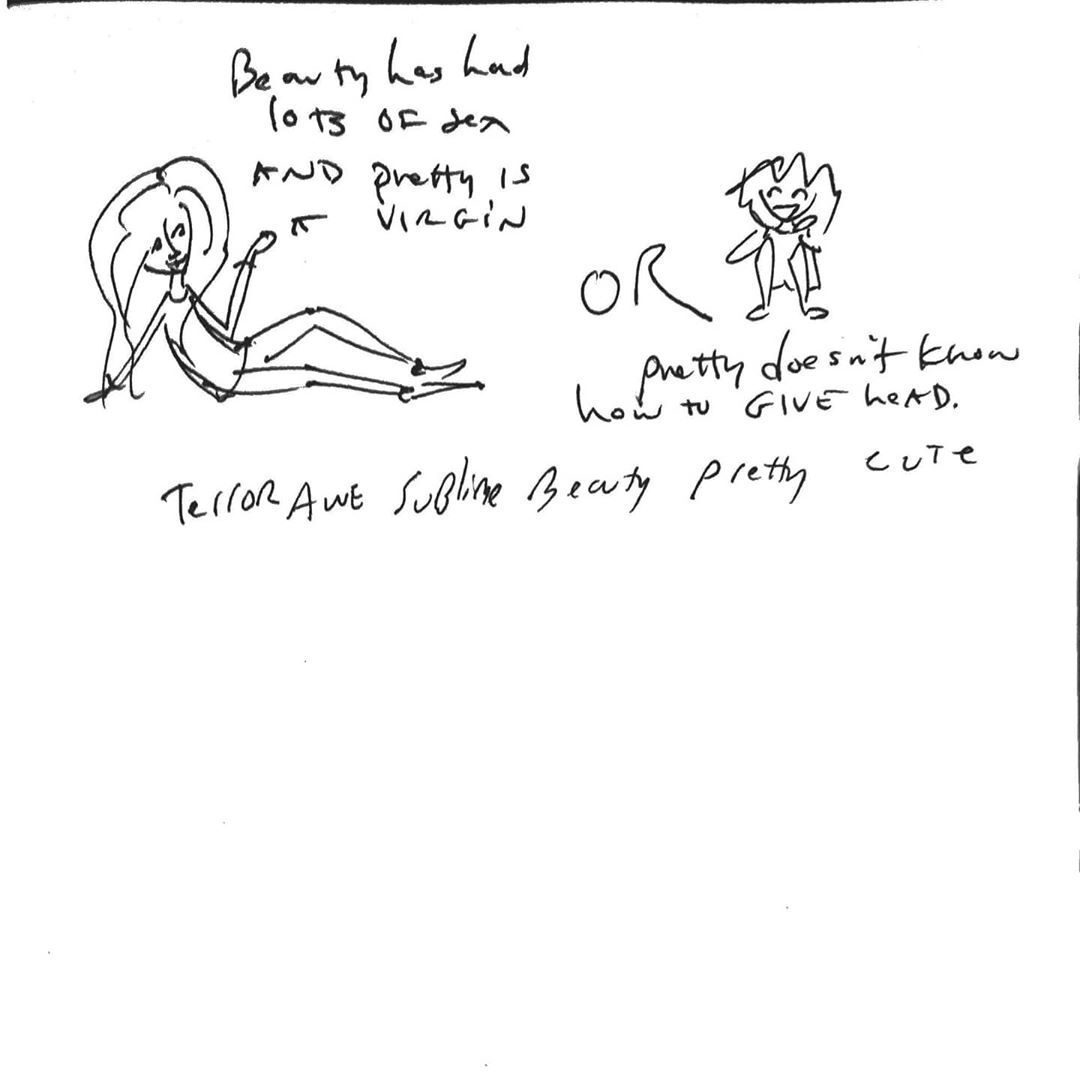 Beauty has had
lots OF sex
AND pretty is
A VIRGIN
OR
pretty doesn't know
how to GIVE heAD.
Terror AWE Sublime Beauty pretty cute